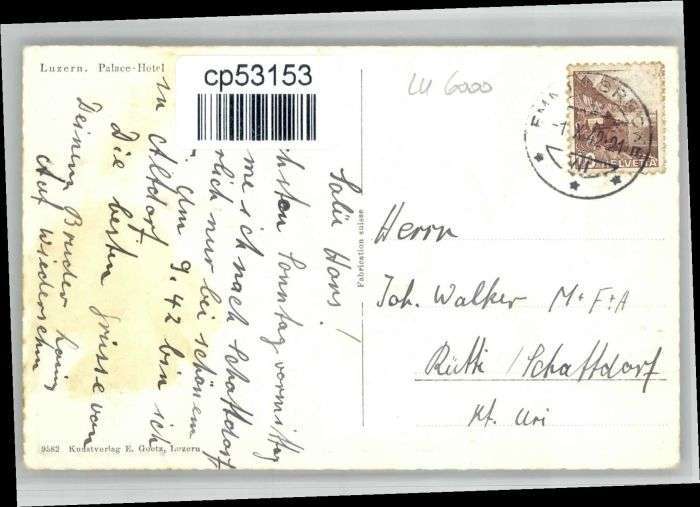 Luzern. Palace-Hotel
cp53153
LU 6000
HELVETIA
Salü Hans!
chsten Sonntag vormittag
me ich nach Schattdorf
rlich nur bei schönem
um 9.42 bin ich
in Altdorf.
Die besten Grüsse von
Deinem Bruder
Auf Wiedersehen
Fabrication suisse
Herrn
Joh. Walker M+F+A
Rütti / Schattdorf
Kt. Uri
9582 Kunstverlag E. Goetz, Luzern